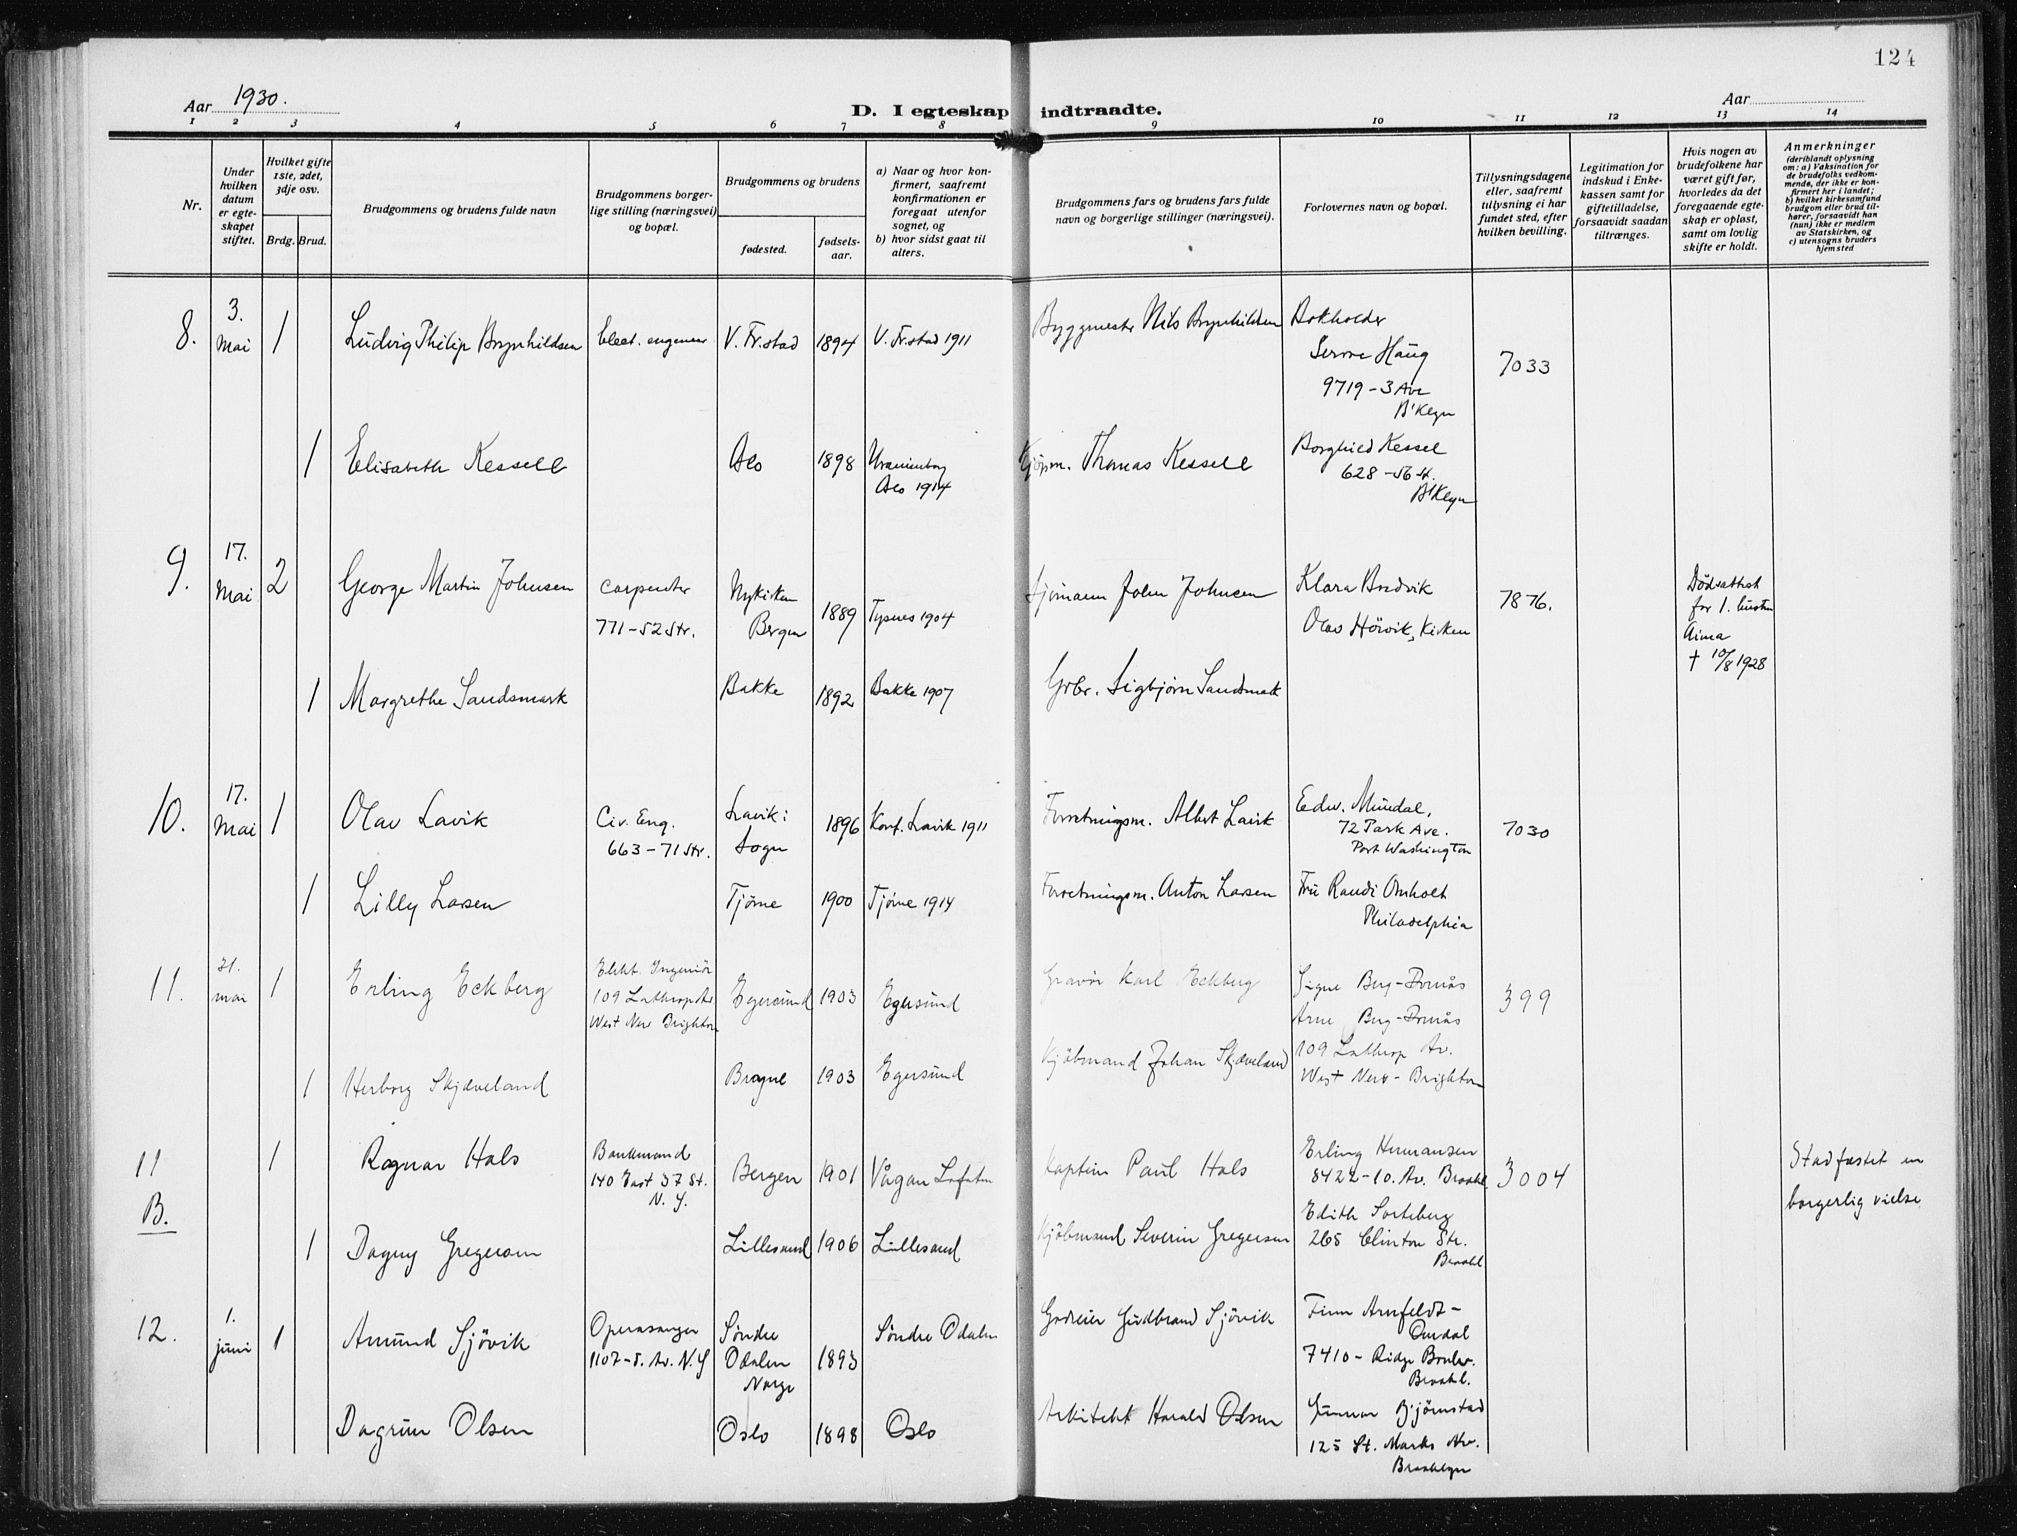 124
Aar 1930.
D. I egteskap indtraadte.
Aar
1 2 3 4 5 6 7 8 9 10 11 12 13 14
Nr.
Under
hvilken
datum
er egte-
skapet
stiftet.
Hvilket gifte
1ste, 2det,
3dje osv.
Brdg. Brud.
Brudgommens og brudens fulde navn
Brudgommens borger-
lige stilling (næringsvei)
og bopæl.
Brudgommens og brudens
fødested.
fødsels-
aar.
a) Naar og hvor kon-
firmert, saafremt
konfirmationen er
foregaat utenfor
sognet, og
b) hvor sidst gaat til
alters.
Brudgommens fars og brudens fars fulde
navn og borgerlige stillinger (næringsvei).
Forlovernes navn og bopæl.
Tillysningsdagene
eller, saafremt
tillysning ei har
fundet sted, efter
hvilken bevilling.
Legitimation for
indskud i Enke-
kassen samt for
giftetilladelse,
forsaavidt saadan
tiltrænges.
Hvis nogen av
brudefolkene har
været gift før,
hvorledes da det
foregaaende egte-
skap er opløst,
samt om lovlig
skifte er holdt.
Anmerkninger
(deriblandt oplysning
om: a) Vaksination for
de brudefolks vedkom-
mende, der ikke er kon-
firmert her i landet;
b) hvilket kirkesamfund
brudgom eller brud til-
hører, forsaavidt han
(hun) ikke er medlem
av Statskirken, og
c) utensogns bruders
hjemsted
8. 3. Mai 1 Ludvig Philip Brynhildsen Elect. engeneer V. Fr.stad 1894 V. Fr.stad 1911 Byggmester Nils Brynhildsen Bokholder
Haug
9719 - 3 Ave
B'klyn
7033
1 Elisabeth Kessell Oslo 1898 Uranienborg
Oslo 1914
Kjøpm. Thomas Kessell Borghild Kessel
628 - 56 st.
B'Klyn
9. 17. Mai 2 George Martin Johnsen Carpenter
771 - 52 Str.
Nykirken
Bergen
1889 Tysnes 1904 Sjømann John Johnsen Klara Bredvik
Olav Hövik, Kirken
7876.
Dødsattest
for 1. hustru
Aima
† 10/8 1928
1 Margrethe Sandsmark Bakke 1892 Bakke 1907 Grbr. Sigbjørn Sandsmark
10. 17. Mai 1 Olav Lavik Civ. Eng.
663 - 71 Str.
Lavik i
Sogn
1896 Konf. Lavik 1911 Forretningsm. Albert Lavik Edw. Mundal,
72 Park Ave.
Port Washington
7030
1 Lilly Larsen Tjøme 1900 Tjøme 1914 Forretningsm. Anton Larsen Fru Randi Omholt
Philadelphia
11. 31. mai 1 Erling Eckberg Elekt. Ingeniör
109 Lathrop Av
West New Brighton
Egersund 1903 Egersund Gravör Karl Eckberg Signe Berg-Dornås
Arne Berg-Dornås
399
1 Herborg Skjæveland Brogne 1903 Egersund Kjöbmand Johan Skjæveland 109 Lathrop Av.
West New-Brighton
11 B. 1 Ragnar Hals Bankmand
140 East 37 St.
N. Y.
Bergen 1901 Vågan Lofoten Kaptein Paul Hals Erling Hermansen
8422 - 10. Av. Brookl.
3004
Stadfæstet en
borgerlig vielse
1 Dagny Gregersen Lillesand 1906 Lillesand Kjöbmand Severin Gregersen Edith Sorteberg
265 Clinton Str.
Brookl.
12. 1. juni 1 Amund Sjövik Operasanger
1107 - 5. Av. N.Y
Söndre
Odalen
Norge
1893 Söndre Odalen Gårdeier Gudbrand Sjövik Finn Arnfeldt-
Omdal
7410 - Ridge Boulev.
Brookl.
Dagrun Olsen Oslo 1898 Oslo Arkitekt Harald Olsen Gunnar Björnstad
125 St. Marks Av.
Brooklyn